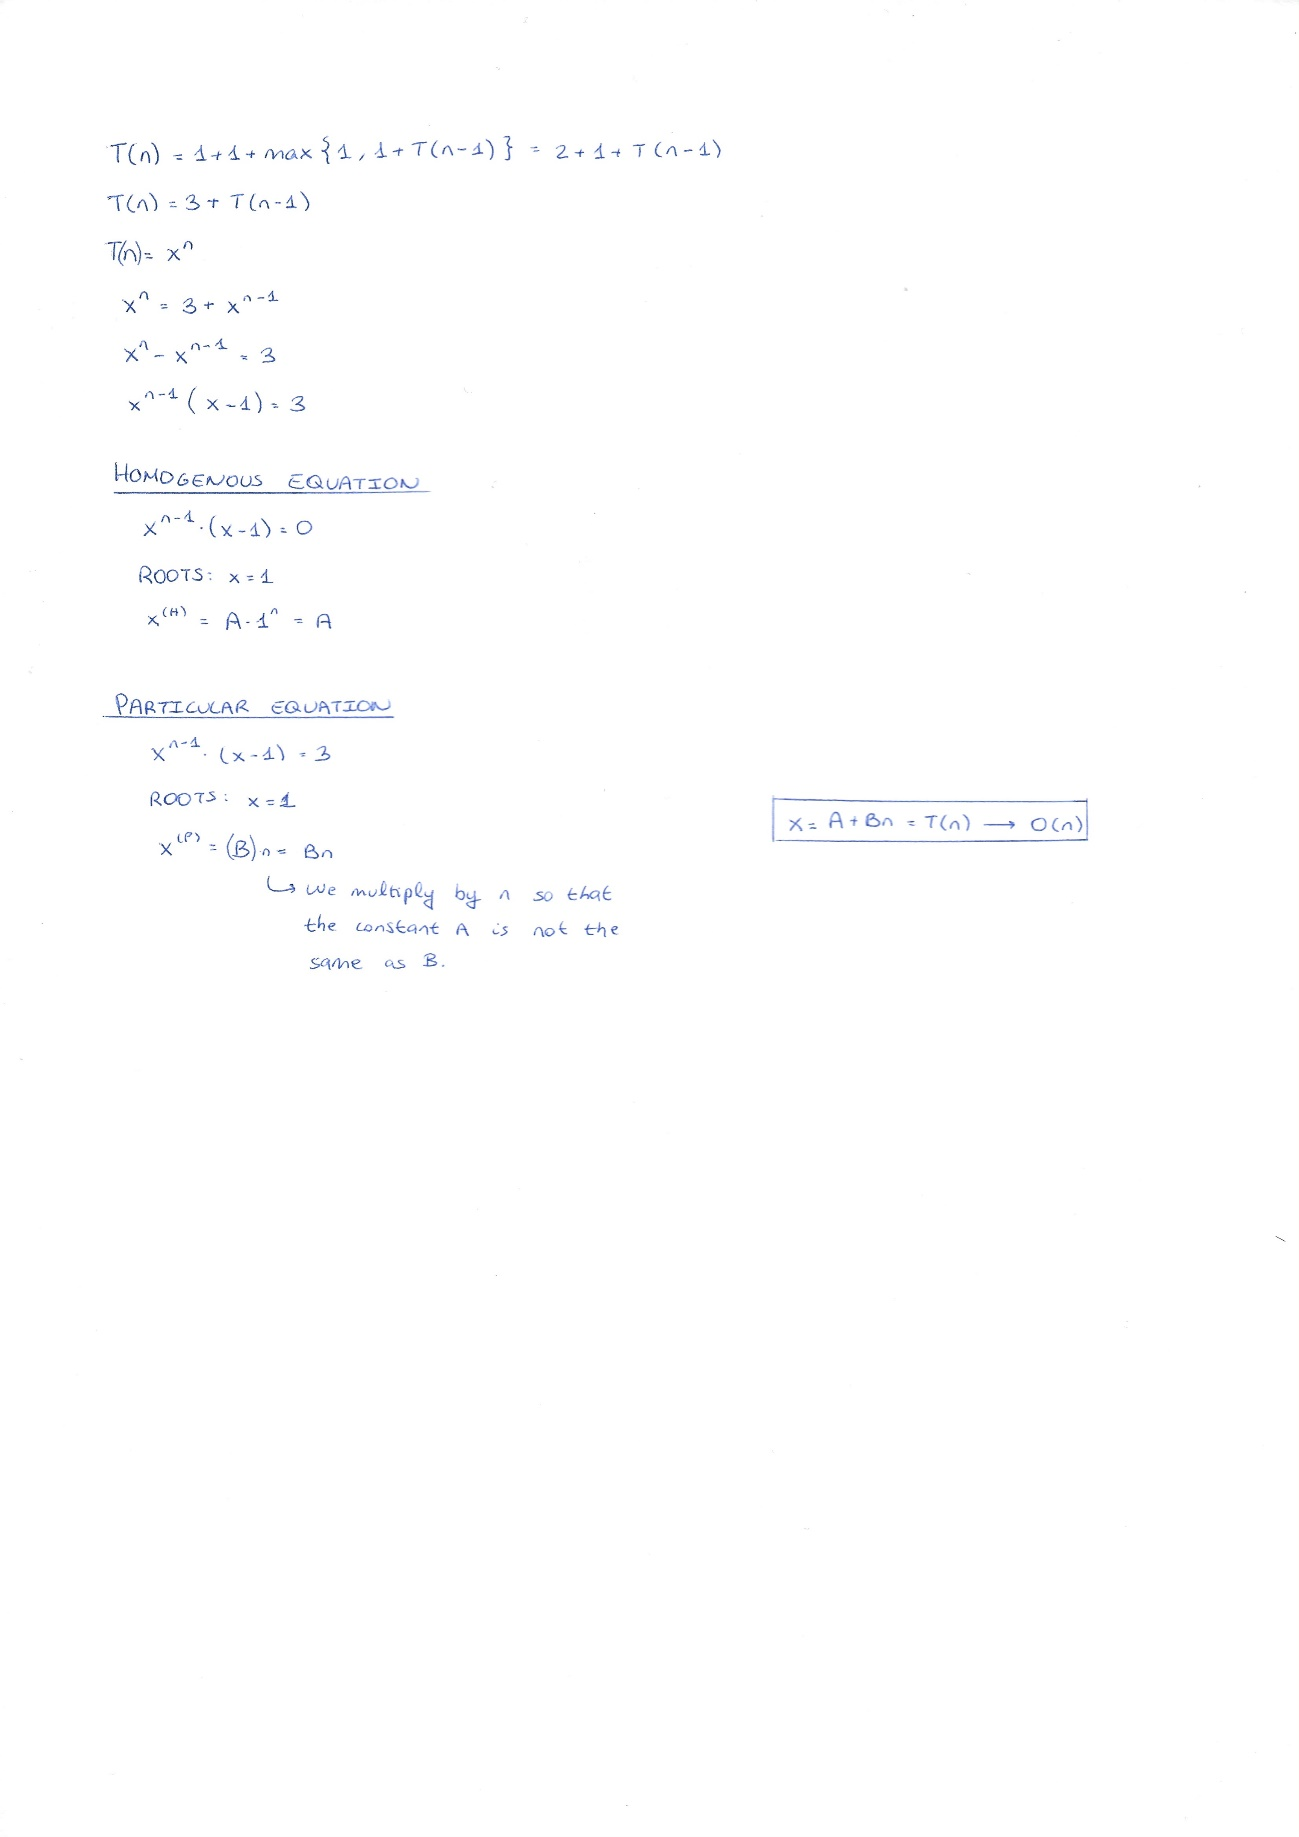 T(n) = 1+1+ max {1, 1+T(n-1)} = 2+1+T(n-1)
T(n) = 3 + T(n-1)
T(n) = xⁿ
xⁿ = 3 + xⁿ⁻¹
xⁿ - xⁿ⁻¹ = 3
xⁿ⁻¹ (x-1) = 3
HOMOGENOUS EQUATION
xⁿ⁻¹·(x-1) = 0
ROOTS: x = 1
x⁽ᴴ⁾ = A·1ⁿ = A
PARTICULAR EQUATION
xⁿ⁻¹·(x-1) = 3
ROOTS: x = 1
x⁽ᴾ⁾ = (B)n = Bn
↳ we multiply by n so that
the constant A is not the
same as B.
x = A + Bn = T(n) → O(n)